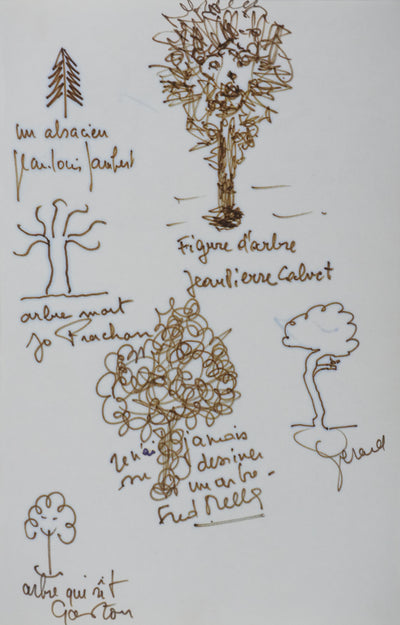 un alsacien
Jean louis Jaubert
Figure d'arbre
Jean Pierre Calvet
arbre mort
Jo Frachon
je n'ai jamais
su dessiner
un arbre -
Fred Mella
Gérard
arbre qui rit
Gaston